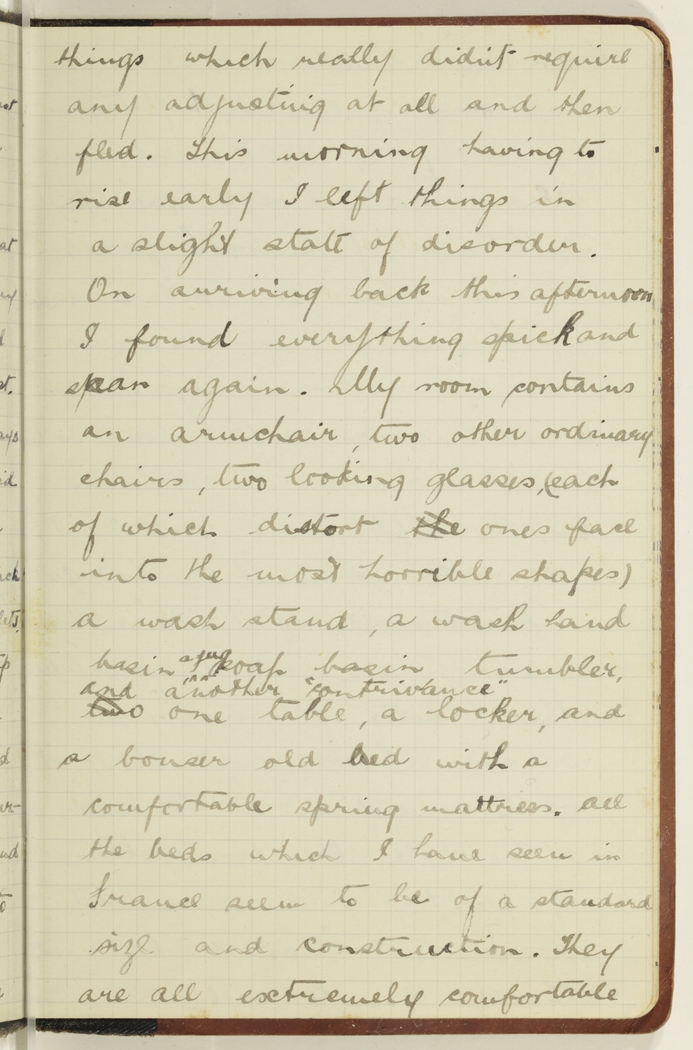 things which really didn't require
any adjusting at all and then
fled. This morning having to
rise early I left things in
a slight state of disorder.
On arriving back this afternoon
I found everything spick and
span again. My room contains
an armchair, two other ordinary
chairs, two looking glasses, (each
of which distort the ones face
into the most horrible shapes)
a wash stand, a wash hand
basin a jug soap basin tumbler,
and another "contrivance"
two one table, a locker, and
a bonser old bed with a
comfortable spring mattress. All
the beds which I have seen in
France seem to be of a standard
size and construction. They
are all extremely comfortable